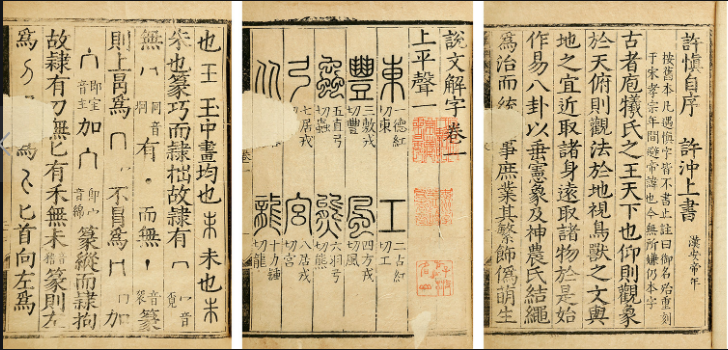 許慎自序 許沖上書
漢安帝年
按舊本凡遇慎字皆不書止註曰御名殆重刻
于宋孝宗年間避帝諱也今無所嫌仍本字
古者庖犧氏之王天下也仰則觀象
於天俯則觀法於地視鳥獸之文與
地之宜近取諸身遠取諸物於是始
作易八卦以垂憲象及神農氏結繩
爲治而統 事庶業其繁飾僞萌生
說文解字卷一
上平聲一
東 一德紅切東 工 二古紅切工
豐 三敷戎切豐 風 四方戎切風
蟲 五直弓切蟲 熊 六羽弓切熊
弓 七居戎切 宮 八居戎切宮
龍 十力鍾切龍
也王 玉中畫均也 未也
也篆巧而隸拙故隸有 音
無 音 有 而無 音 篆
則上 爲 不 爲 加
音主 加 音綿 篆縱而隸拘
故隸有刀無匕有禾無 篆則左
爲 爲 匕首向左爲